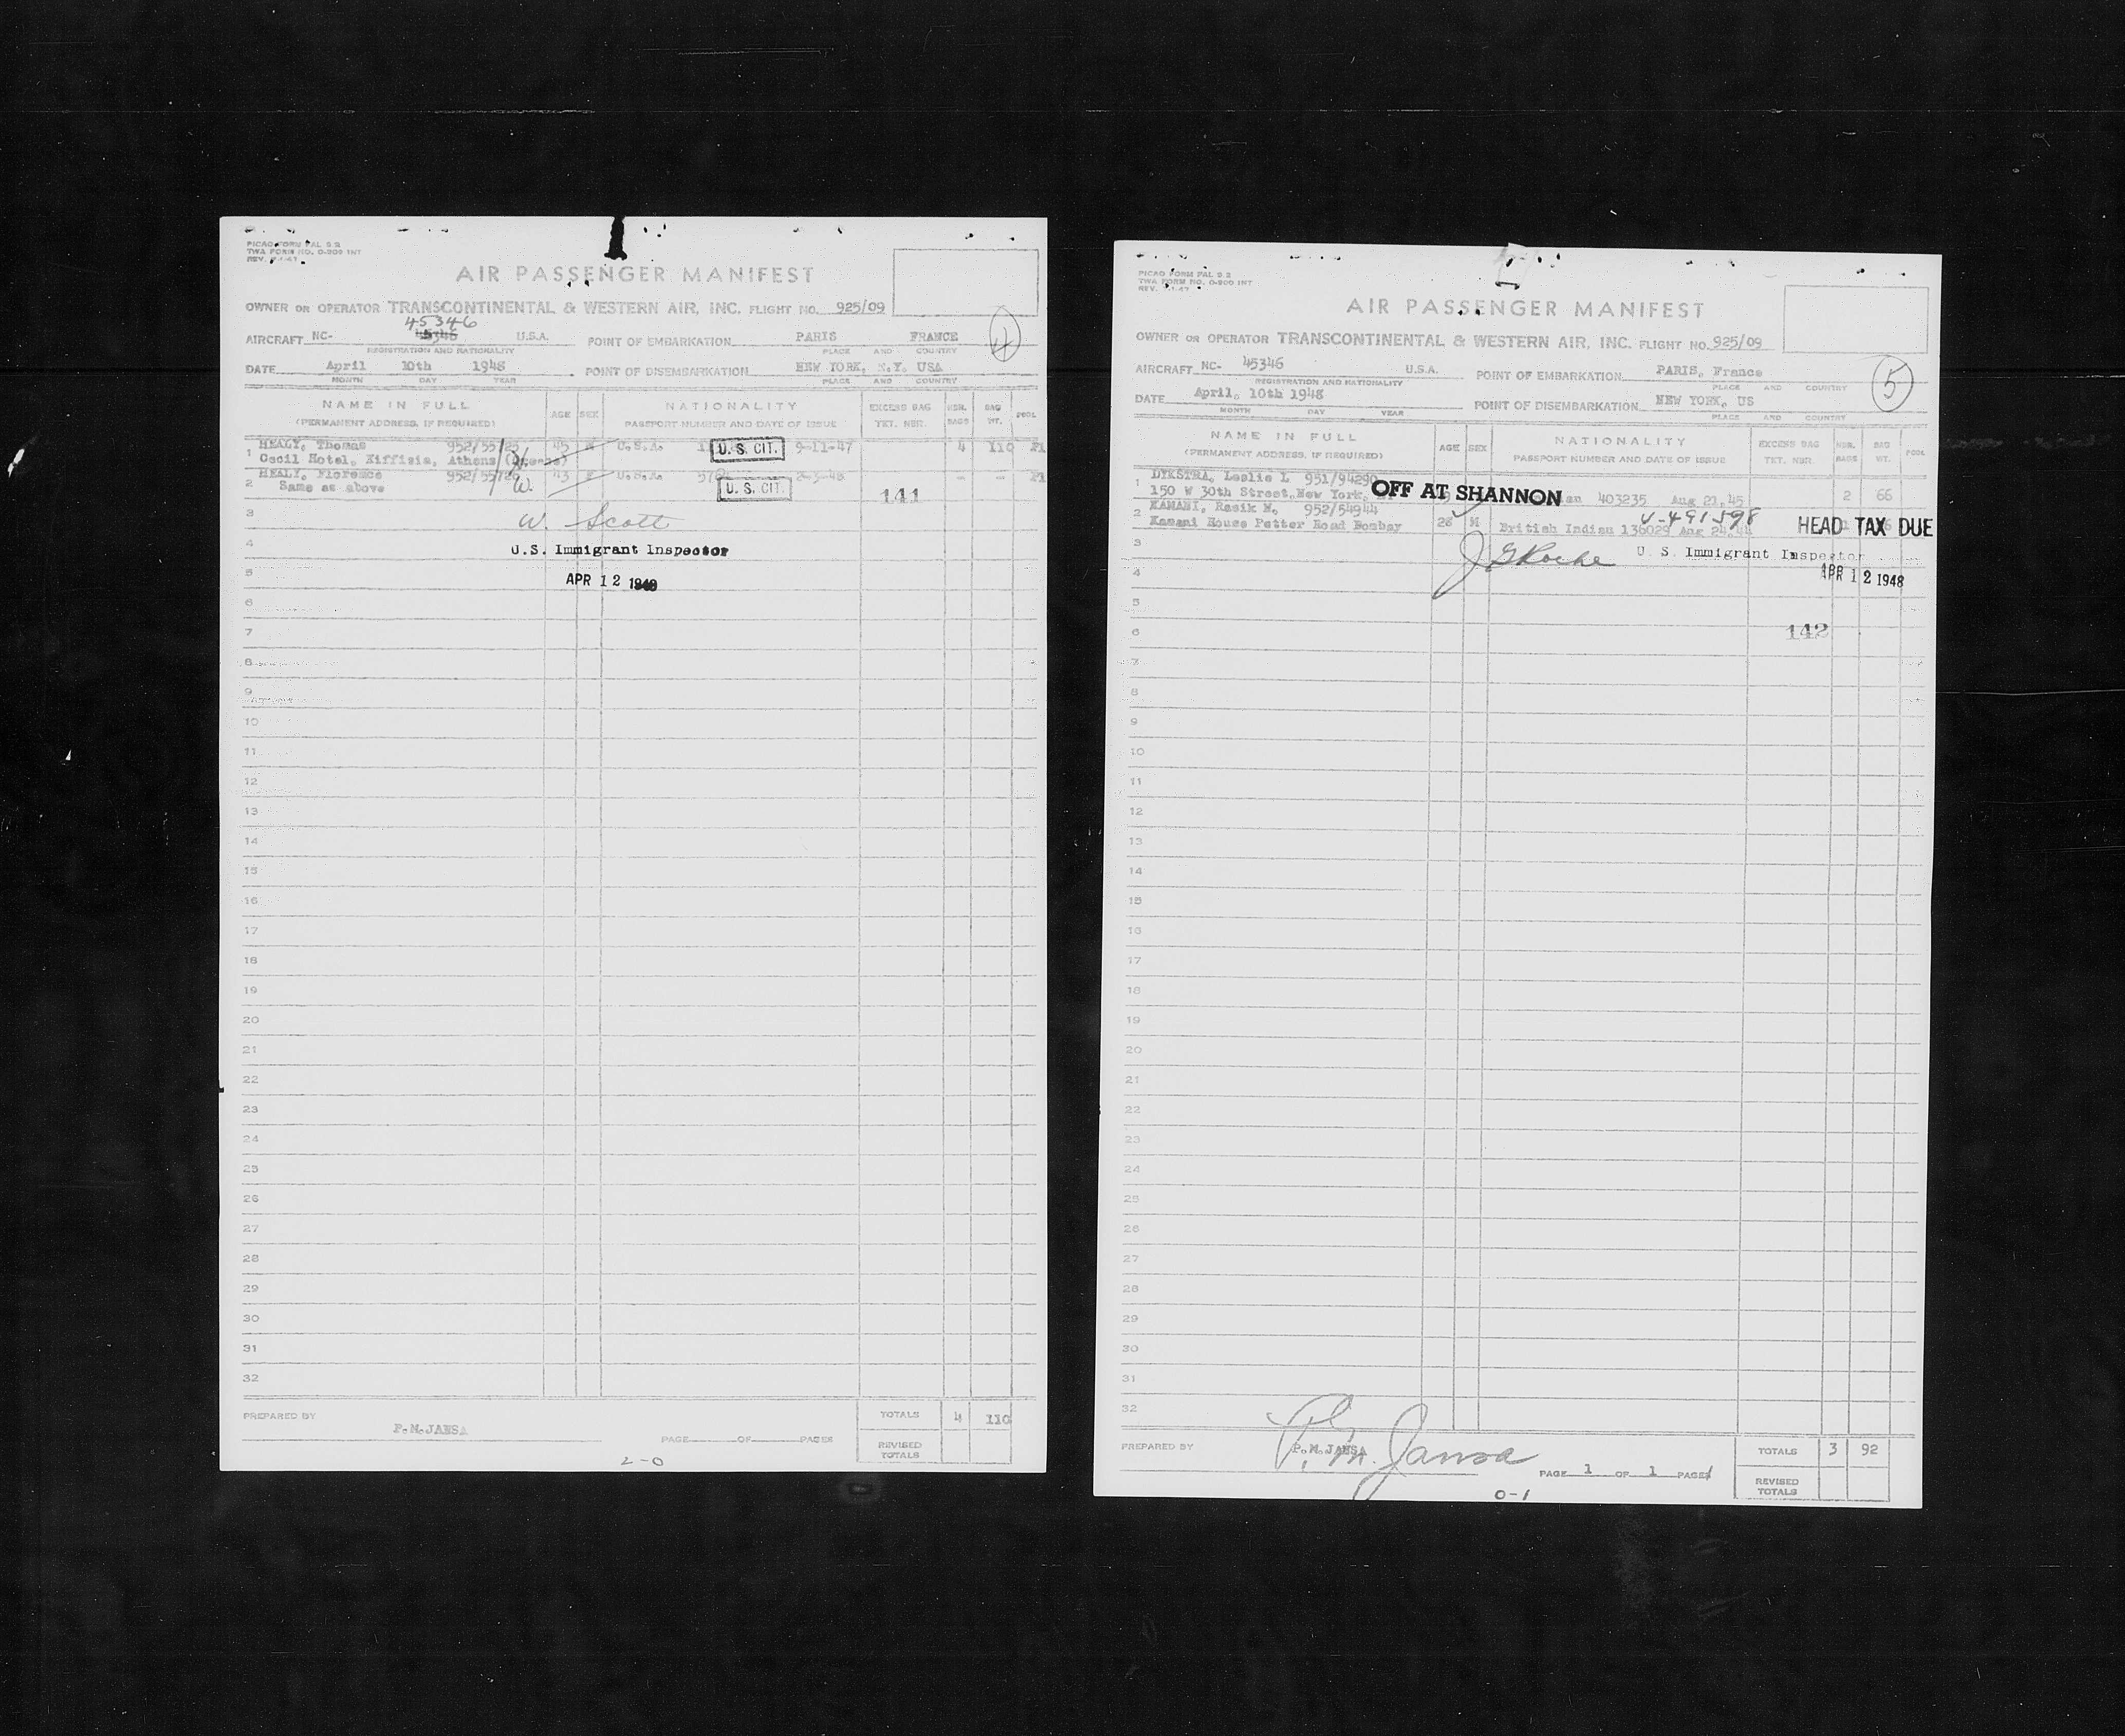 PICAO FORM PAL S 2
TWA FORM NO. O-900 INT
REV.
AIR PASSENGER MANIFEST
OWNER OR OPERATOR TRANSCONTINENTAL & WESTERN AIR, INC. FLIGHT NO. 925/09
45346
AIRCRAFT NC- 45346 U.S.A. POINT OF EMBARKATION PARIS FRANCE
REGISTRATION AND NATIONALITY PLACE AND COUNTRY
DATE April 10th 1948 POINT OF DISEMBARKATION NEW YORK, N.Y. USA
MONTH DAY YEAR PLACE AND COUNTRY
4
NAME IN FULL AGE SEX NATIONALITY EXCESS BAG NBR. BAG POOL
(PERMANENT ADDRESS, IF REQUIRED) PASSPORT NUMBER AND DATE OF ISSUE TKT. NBR. BAGS WT.
HEALY, Thomas 45 M U.S.A. U. S. CIT. 9-11-47 4 110
1 Cecil Hotel, Kiffisia, Athens
HEALY, Florence 43 F U.S.A. U. S. CIT.
2 Same as above W. 141
3 W. Scott
4 U.S. Immigrant Inspector
5 APR 12 1948
6
7
8
9
10
11
12
13
14
15
16
17
18
19
20
21
22
23
24
25
26
27
28
29
30
31
32
PREPARED BY P.M.JANSA PAGE OF PAGES TOTALS 4 110
REVISED TOTALS
2-0
PICAO FORM PAL S 2
TWA FORM NO. O-900 INT
REV.
AIR PASSENGER MANIFEST
OWNER OR OPERATOR TRANSCONTINENTAL & WESTERN AIR, INC. FLIGHT NO. 925/09
AIRCRAFT NC- 45346 U.S.A. POINT OF EMBARKATION PARIS, France
REGISTRATION AND NATIONALITY PLACE AND COUNTRY
DATE April, 10th 1948 POINT OF DISEMBARKATION NEW YORK, US
MONTH DAY YEAR PLACE AND COUNTRY
5
NAME IN FULL AGE SEX NATIONALITY EXCESS BAG NBR. BAG POOL
(PERMANENT ADDRESS, IF REQUIRED) PASSPORT NUMBER AND DATE OF ISSUE TKT. NBR. BAGS WT.
DYKSTRA, Leslie L 951/94290
1 150 W 30th Street, New York, OFF AT SHANNON 403235 Aug 21,45 2 66
KAMANI, Rasik N, 952/54944 V-491598
2 Kamani House Petter Road Bombay 28 M British Indian 136029 Aug 24,44 HEAD TAX DUE
3 J G Roche U. S. Immigrant Inspector
4 APR 12 1948
5
6 142
7
8
9
10
11
12
13
14
15
16
17
18
19
20
21
22
23
24
25
26
27
28
29
30
31
32
PREPARED BY P.M.JANSA P. M. Jansa PAGE 1 OF 1 PAGES TOTALS 3 92
REVISED TOTALS
0-1